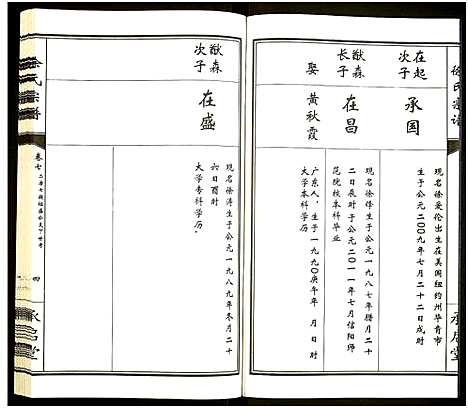 徐氏宗谱
承启堂
在起
次子
承国
现名徐爱伦出生在美国纽约州华青市
生于公元二00九年七月二十二日戌时
猷森
长子
在昌
现名徐锋生于公元一九八七年腊月二十
二日辰时于公元二0一一年七月信阳师
范院校本科毕业
娶
黄秋霞
广东人，生于一九九0庚午年 月 日时
大学本科学历。
猷森
次子
在盛
现名徐涛生于公元一九八九年冬月二十
六日酉时
大学专科学历。
徐氏宗谱
卷七
四
承启堂